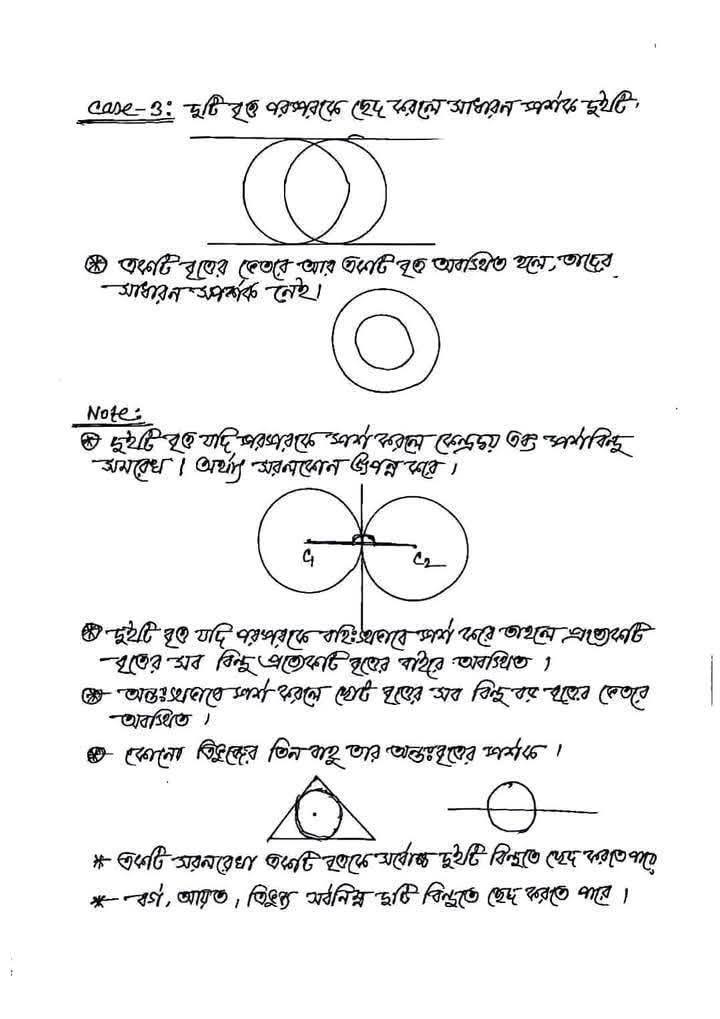 Case-3: দুটি বৃত্ত পরস্পরকে ছেদ করলে সাধারন স্পর্শক দুইটি।
একটি বৃত্তের ভেতরে আর একটি বৃত্ত অবস্থিত হলে, তাদের
সাধারন স্পর্শক নেই।
Note:
দুইটি বৃত্ত যদি পরস্পরকে স্পর্শ করলে কেন্দ্রদ্বয় এবং স্পর্শবিন্দু
সমরেখ। অর্থ্যাৎ সরলকোন উৎপন্ন করে।
C1 C2
দুইটি বৃত্ত যদি পরস্পরকে বহিঃস্থভাবে স্পর্শ করে তাহলে প্রত্যেকটি
বৃত্তের সব বিন্দু প্রত্যেকটি বৃত্তের বাইরে অবস্থিত।
অন্তঃস্থভাবে স্পর্শ করলে ছোট বৃত্তের সব বিন্দু বড় বৃত্তের ভেতরে
অবস্থিত।
কোনো ত্রিভুজের তিন বাহু তার অন্তঃবৃত্তের স্পর্শক।
* একটি সরলরেখা একটি বৃত্তকে সর্বোচ্চ দুইটি বিন্দুতে ছেদ করতে পারে
* বর্গ, আয়ত, ত্রিভুজ সর্বনিম্ন দুটি বিন্দুতে ছেদ করতে পারে।